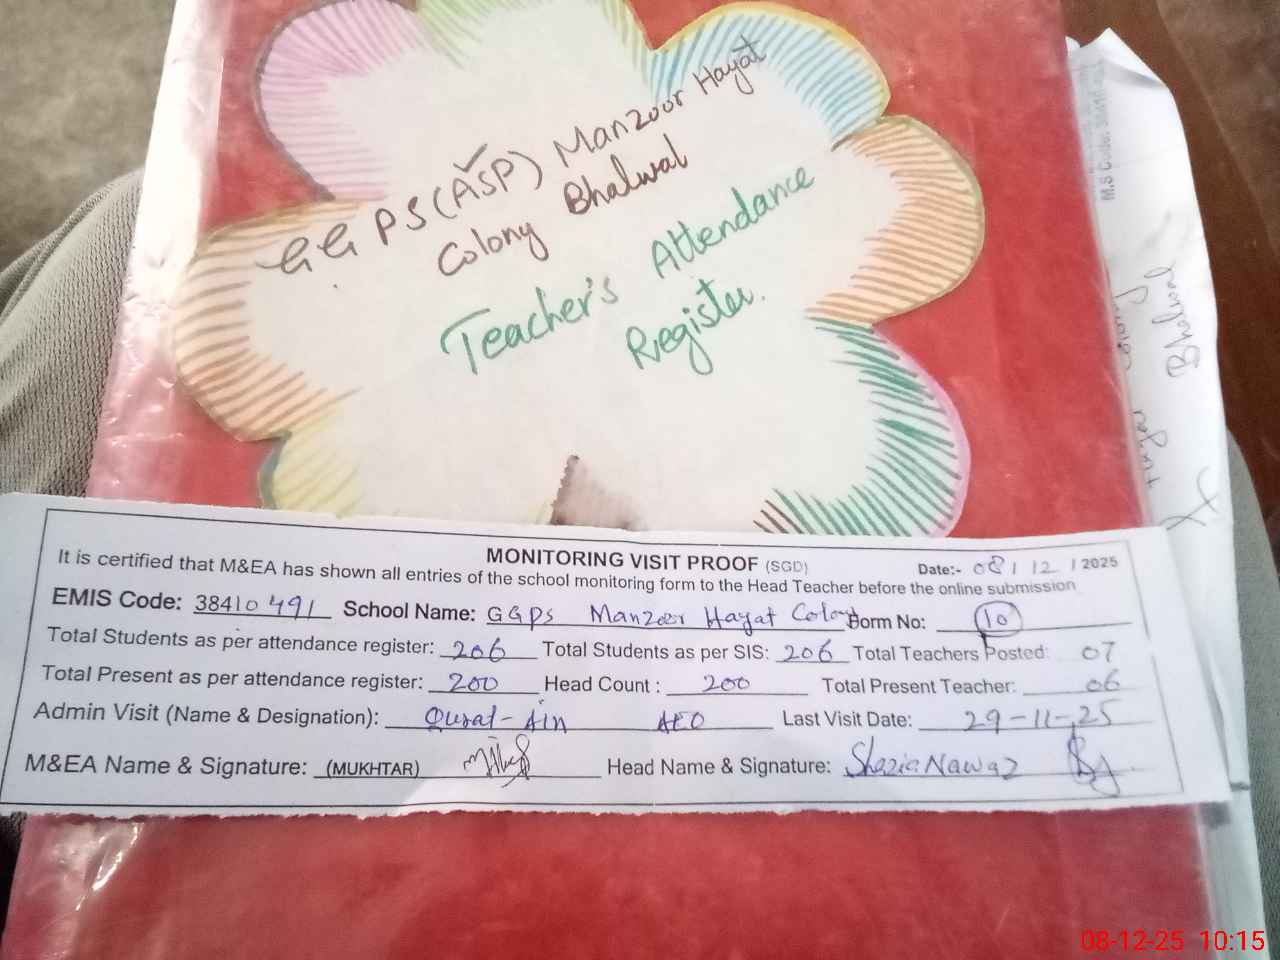 GGPS (ASP) Manzoor Hayat
Colony Bhalwal
Teacher's Attendance
Register.
M.S Code:
Colony
Bhalwal
MONITORING VISIT PROOF (SGD)
Date:- 08 / 12 / 2025
It is certified that M&EA has shown all entries of the school monitoring form to the Head Teacher before the online submission
EMIS Code: 38410491 School Name: GGPS Manzoor Hayat Colony Form No: 10
Total Students as per attendance register: 206 Total Students as per SIS: 206 Total Teachers Posted: 07
Total Present as per attendance register: 200 Head Count : 200 Total Present Teacher: 06
Admin Visit (Name & Designation): Qurat-Ain AEO Last Visit Date: 29-11-25
M&EA Name & Signature: (MUKHTAR) Head Name & Signature: Shazia Nawaz
08-12-25 10:15